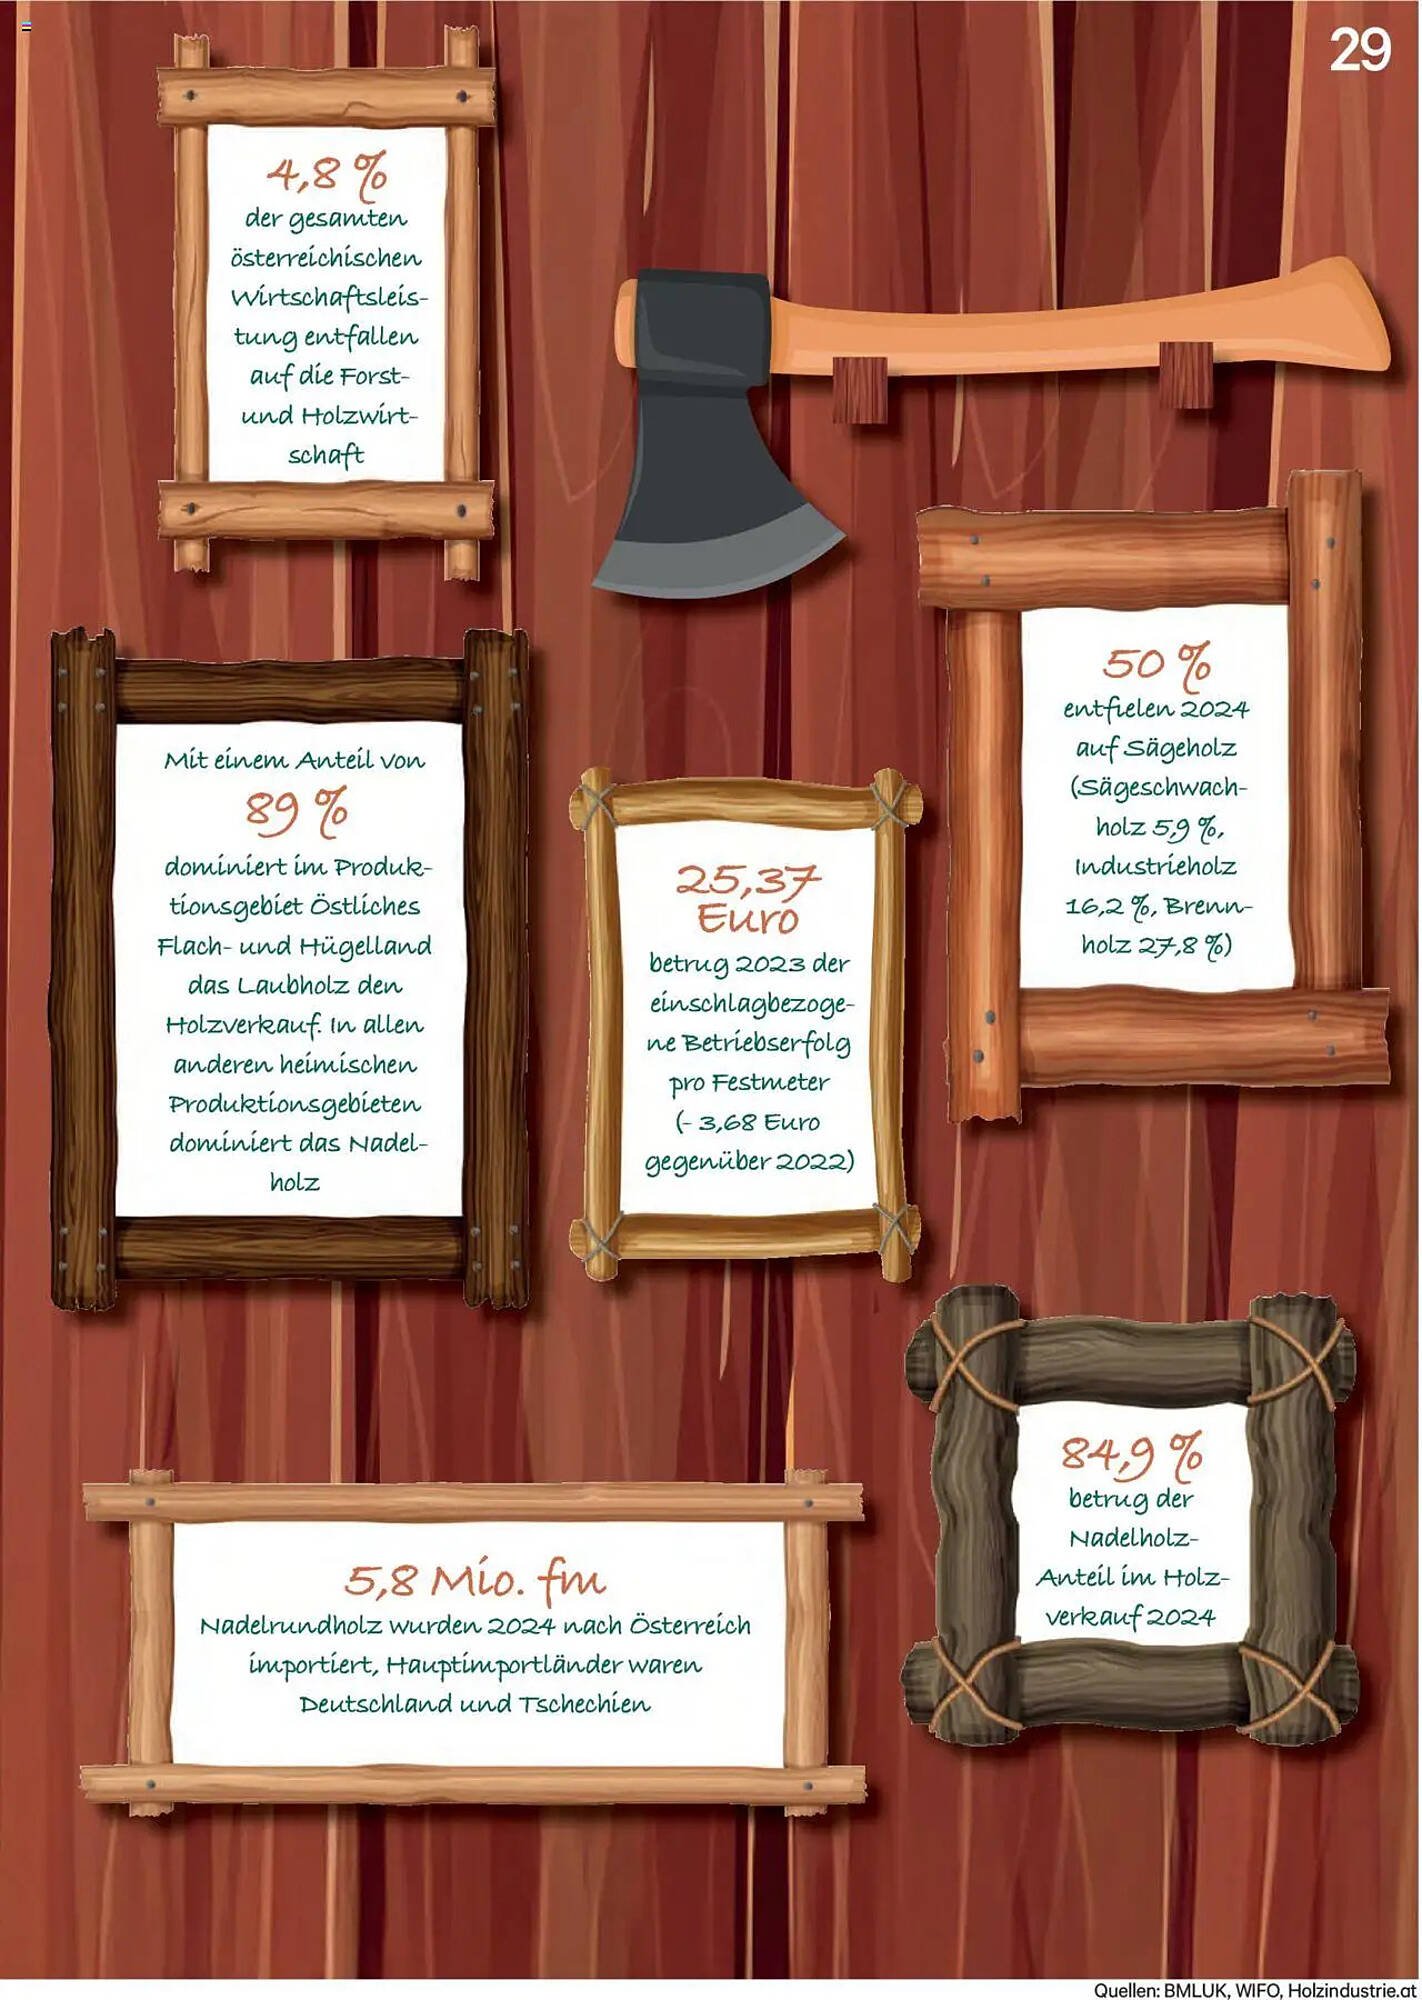 29
4,8 %
der gesamten
österreichischen
Wirtschaftsleis-
tung entfallen
auf die Forst-
und Holzwirt-
schaft
50 %
entfielen 2024
auf Sägeholz
(Sägeschwach-
holz 5,9 %,
Industrieholz
16,2 %, Brenn-
holz 27,8 %)
Mit einem Anteil von
89 %
dominiert im Produk-
tionsgebiet Östliches
Flach- und Hügelland
das Laubholz den
Holzverkauf. In allen
anderen heimischen
Produktionsgebieten
dominiert das Nadel-
holz
25,37
Euro
betrug 2023 der
einschlagbezoge-
ne Betriebserfolg
pro Festmeter
(- 3,68 Euro
gegenüber 2022)
84,9 %
betrug der
Nadelholz-
Anteil im Holz-
verkauf 2024
5,8 Mio. fm
Nadelrundholz wurden 2024 nach Österreich
importiert, Hauptimportländer waren
Deutschland und Tschechien
Quellen: BMLUK, WIFO, Holzindustrie.at